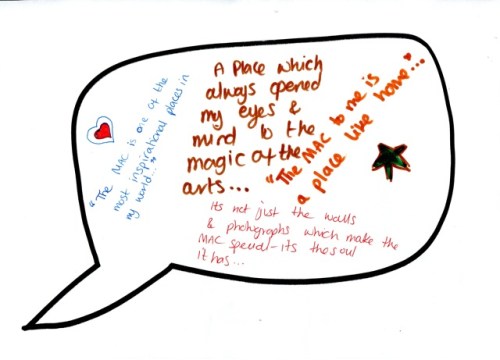 "The MAC is one of the
most inspirational places in
my world..."
A Place which
always opened
my eyes &
mind to the
magic of the
arts...
"The MAC to me is
a place like home..."
its not just the walls
& photographs which make the
MAC special - its the soul
it has...